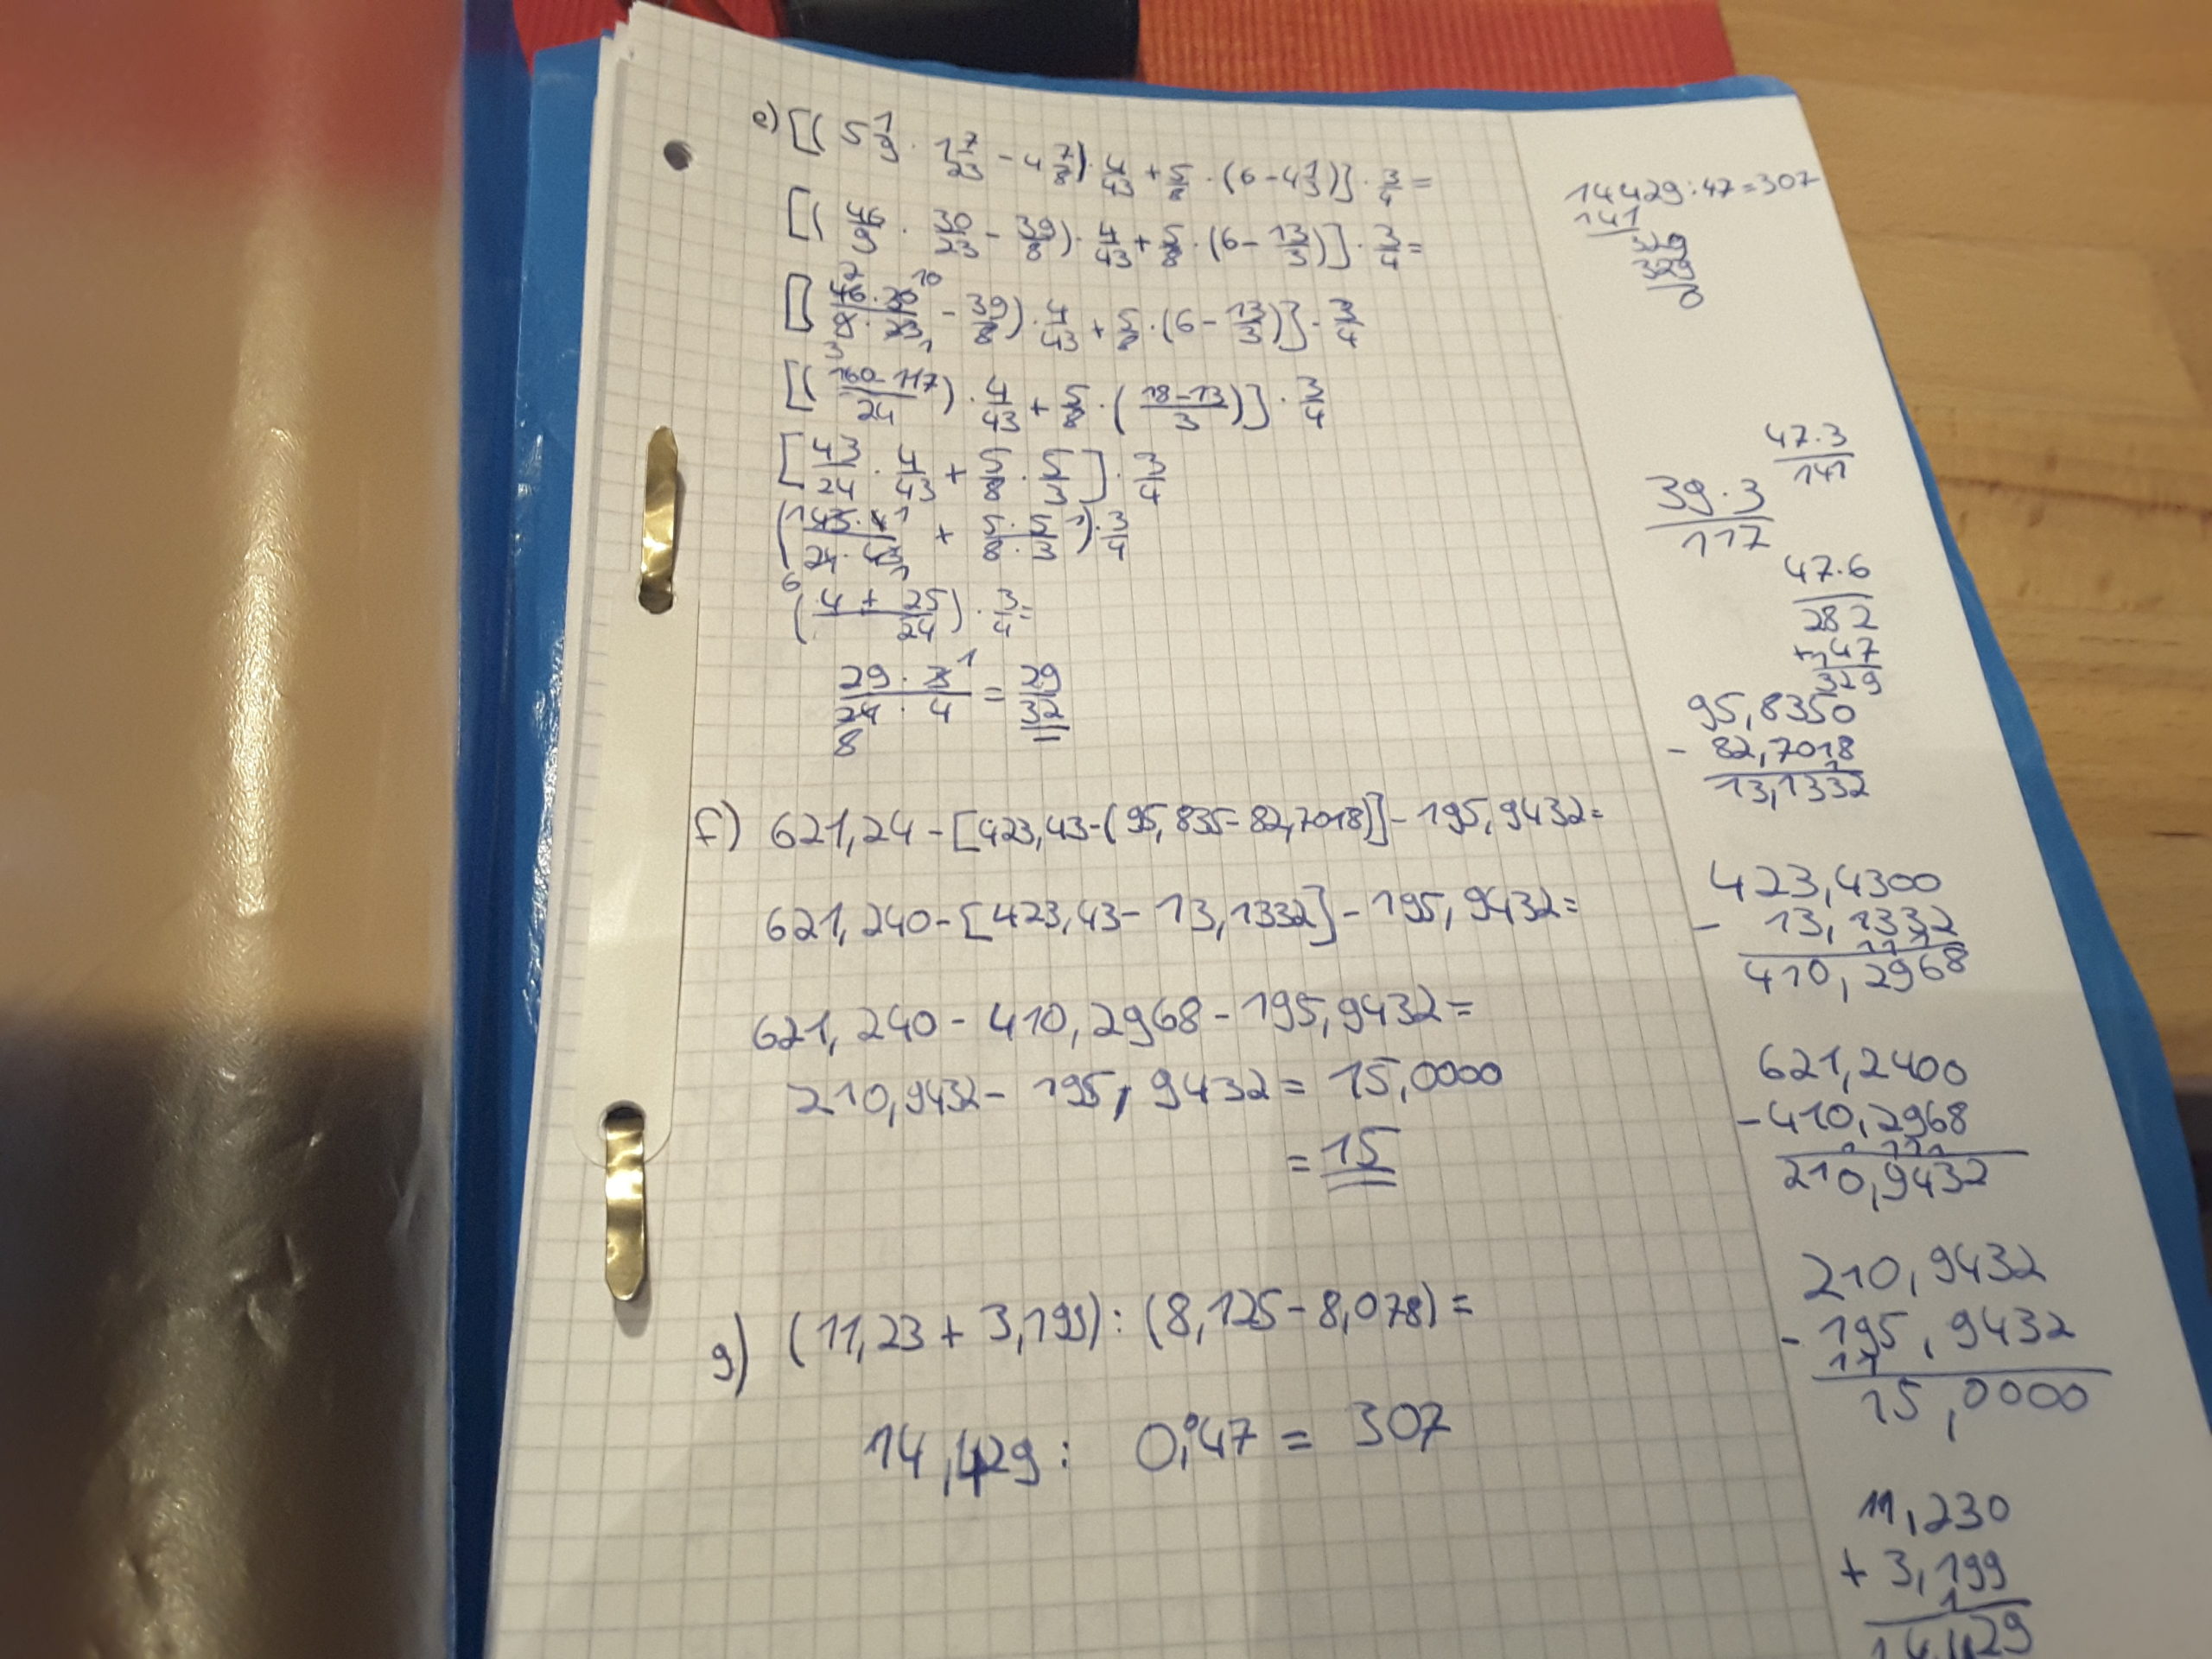 e) [( 5 1/9 · 1 7/23 - 4 7/8) · 4/43 + 5/8 · (6 - 4 1/3)] · 3/4 =
[( 46/9 · 30/23 - 39/8) · 4/43 + 5/8 · (6 - 13/3)] · 3/4 =
[( 46 · 30 / 9 · 23 - 39/8) · 4/43 + 5/8 · (6 - 13/3)] · 3/4
[( 160 - 117 / 24 ) · 4/43 + 5/8 · ( 18 - 13 / 3 )] · 3/4
[ 43/24 · 4/43 + 5/8 · 5/3 ] · 3/4
( 43 · 4 / 24 · 43 + 5 · 5 / 8 · 3 ) · 3/4
( 4 + 25 / 24 ) · 3/4 =
29 · 3 / 24 · 4 = 29/32
f) 621,24 - [423,43 - (95,835 - 82,7018)] - 195,9432 =
621,240 - [423,43 - 13,1332] - 195,9432 =
621,240 - 410,2968 - 195,9432 =
210,9432 - 195,9432 = 15,0000
= 15
g) (11,23 + 3,199) : (8,125 - 8,078) =
14,429 : 0,047 = 307
14429 : 47 = 307
141
329
329
0
47 · 3
141
39 · 3
117
47 · 6
282
+ 47
329
95,8350
- 82,7018
13,1332
423,4300
- 13,1332
410,2968
621,2400
- 410,2968
210,9432
210,9432
- 195,9432
15,0000
11,230
+ 3,199
14,429